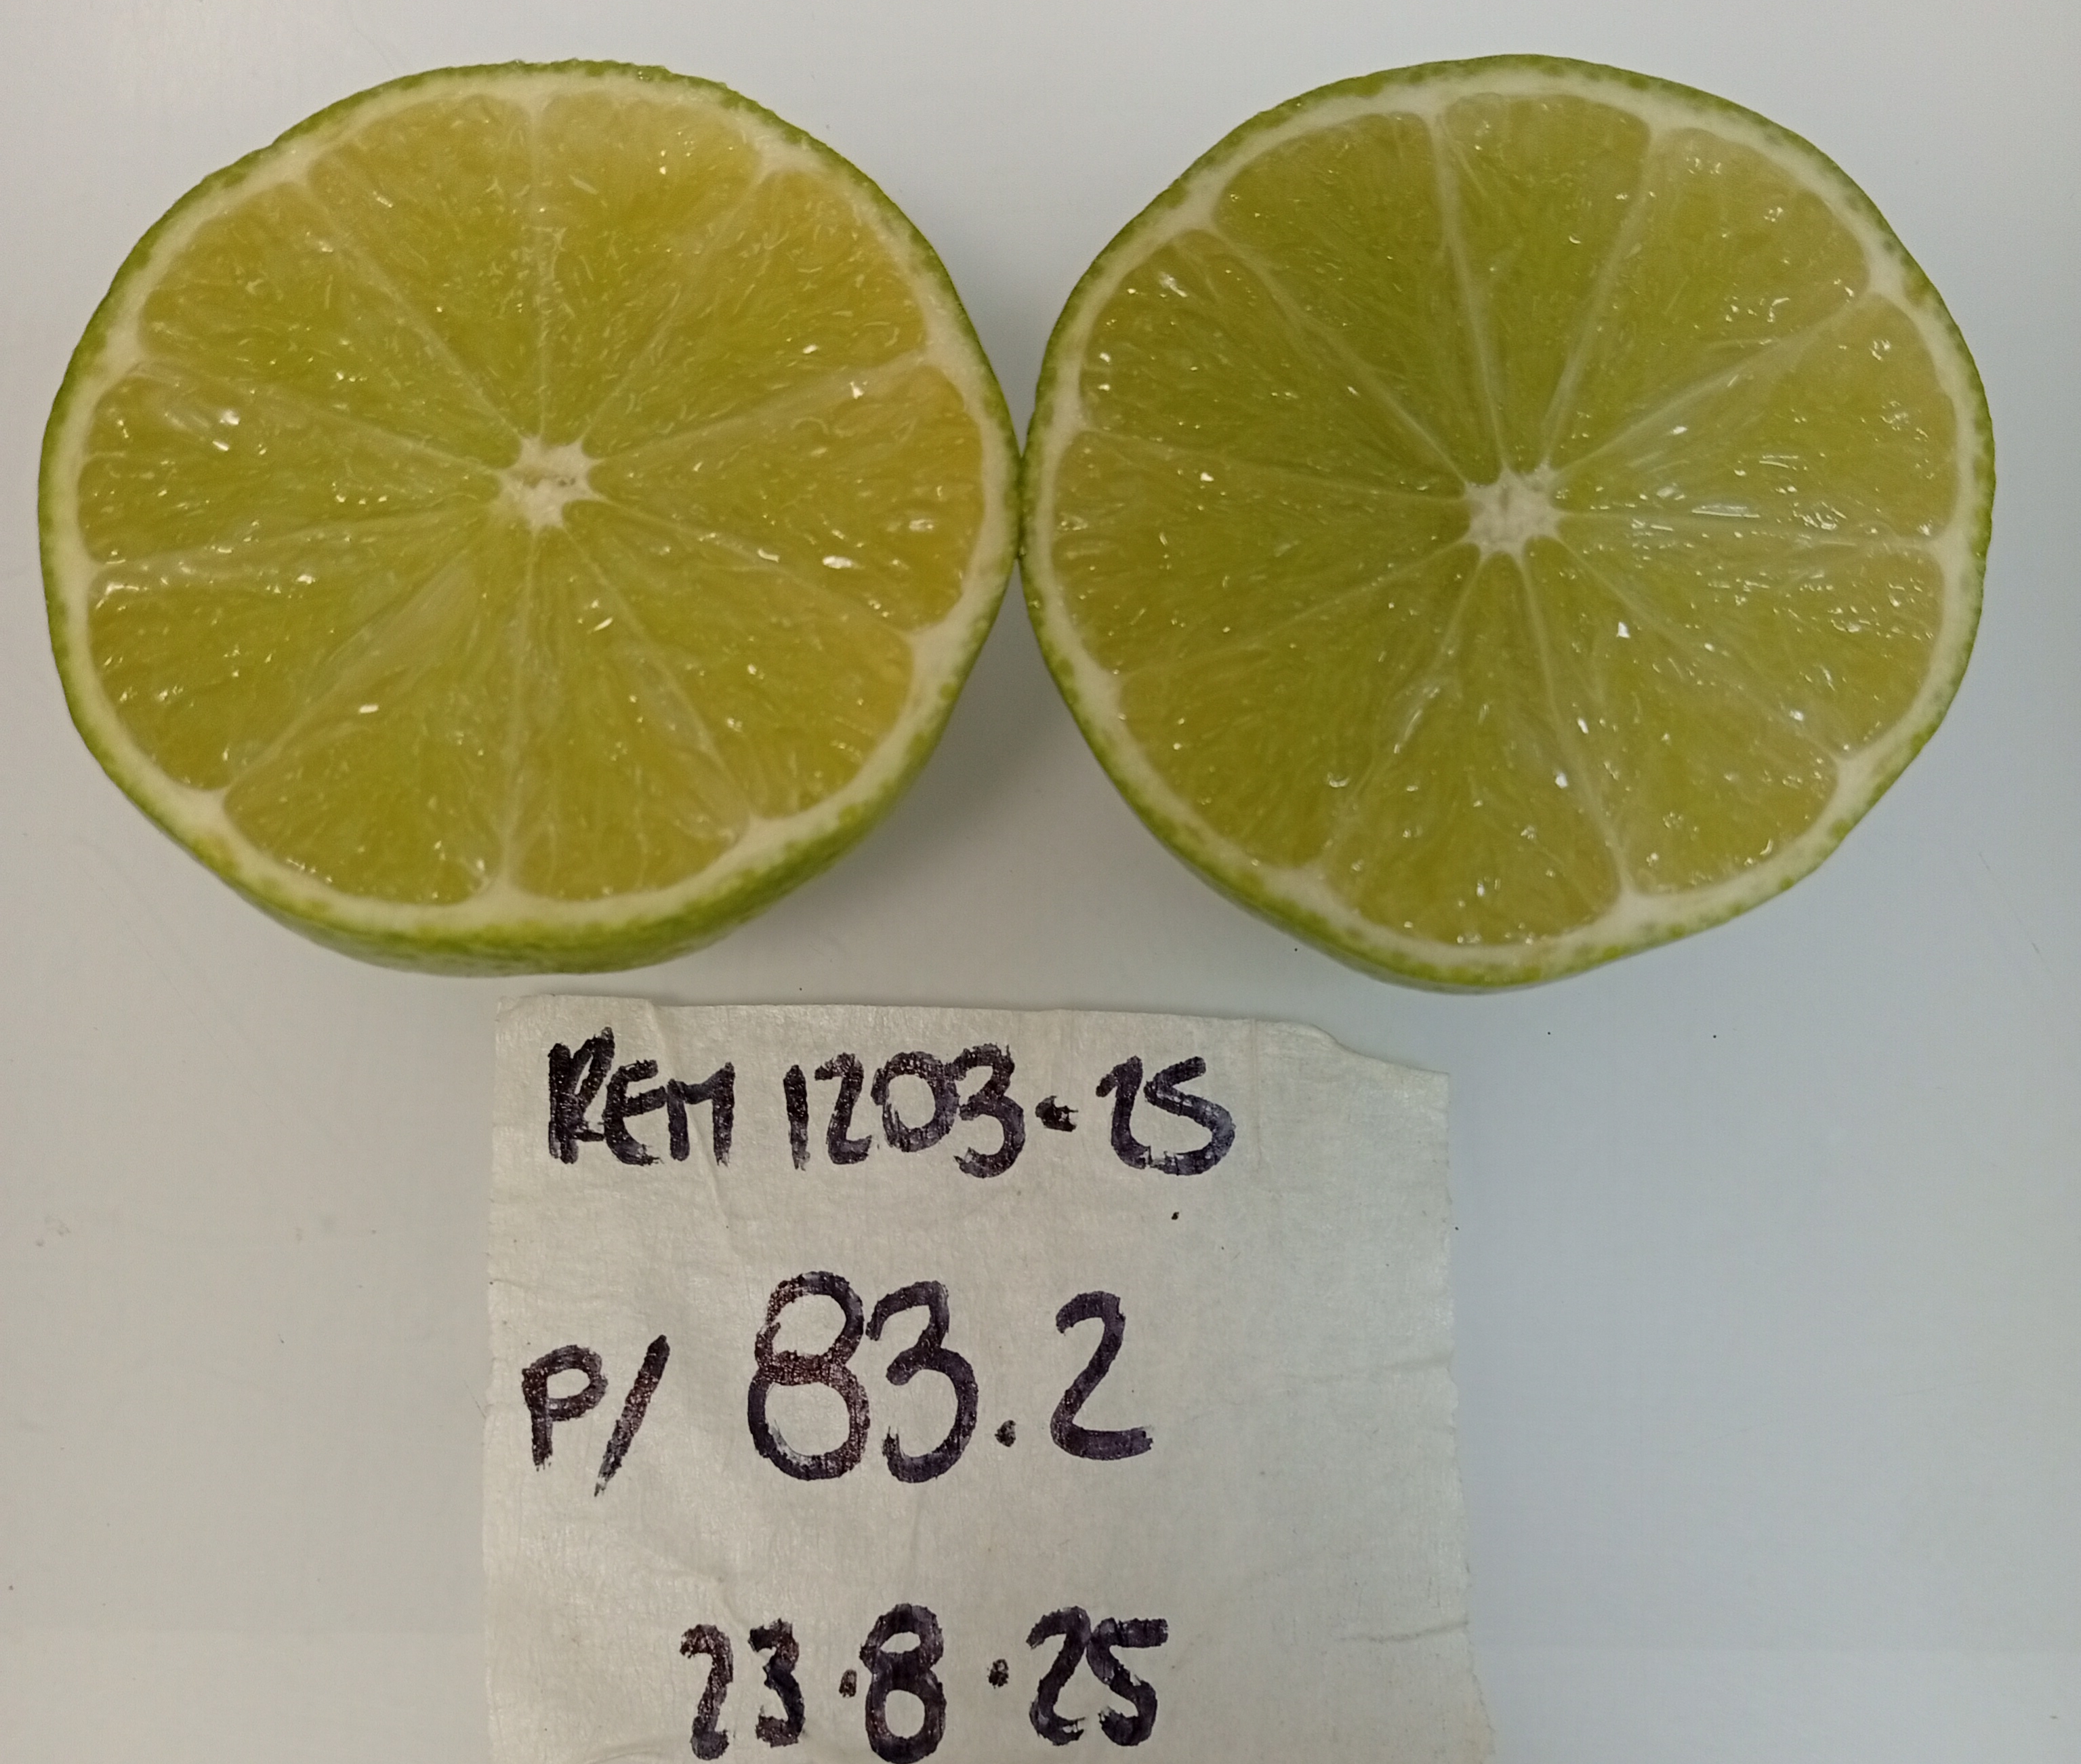 REM 1203-25
P/ 83.2
23.8.25